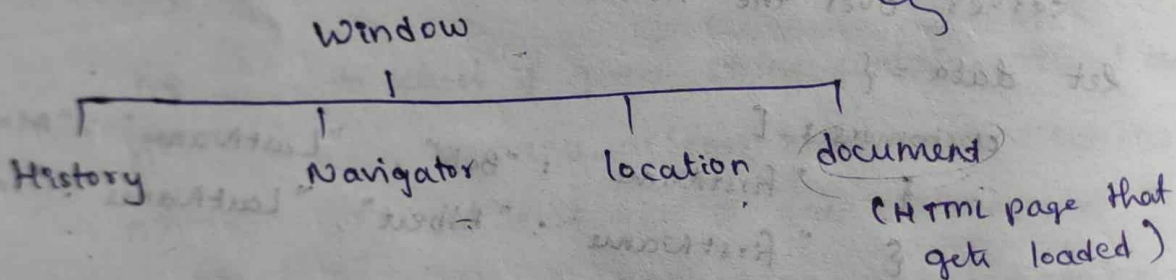 Window
History Navigator location document
(HTML page that
gets loaded)